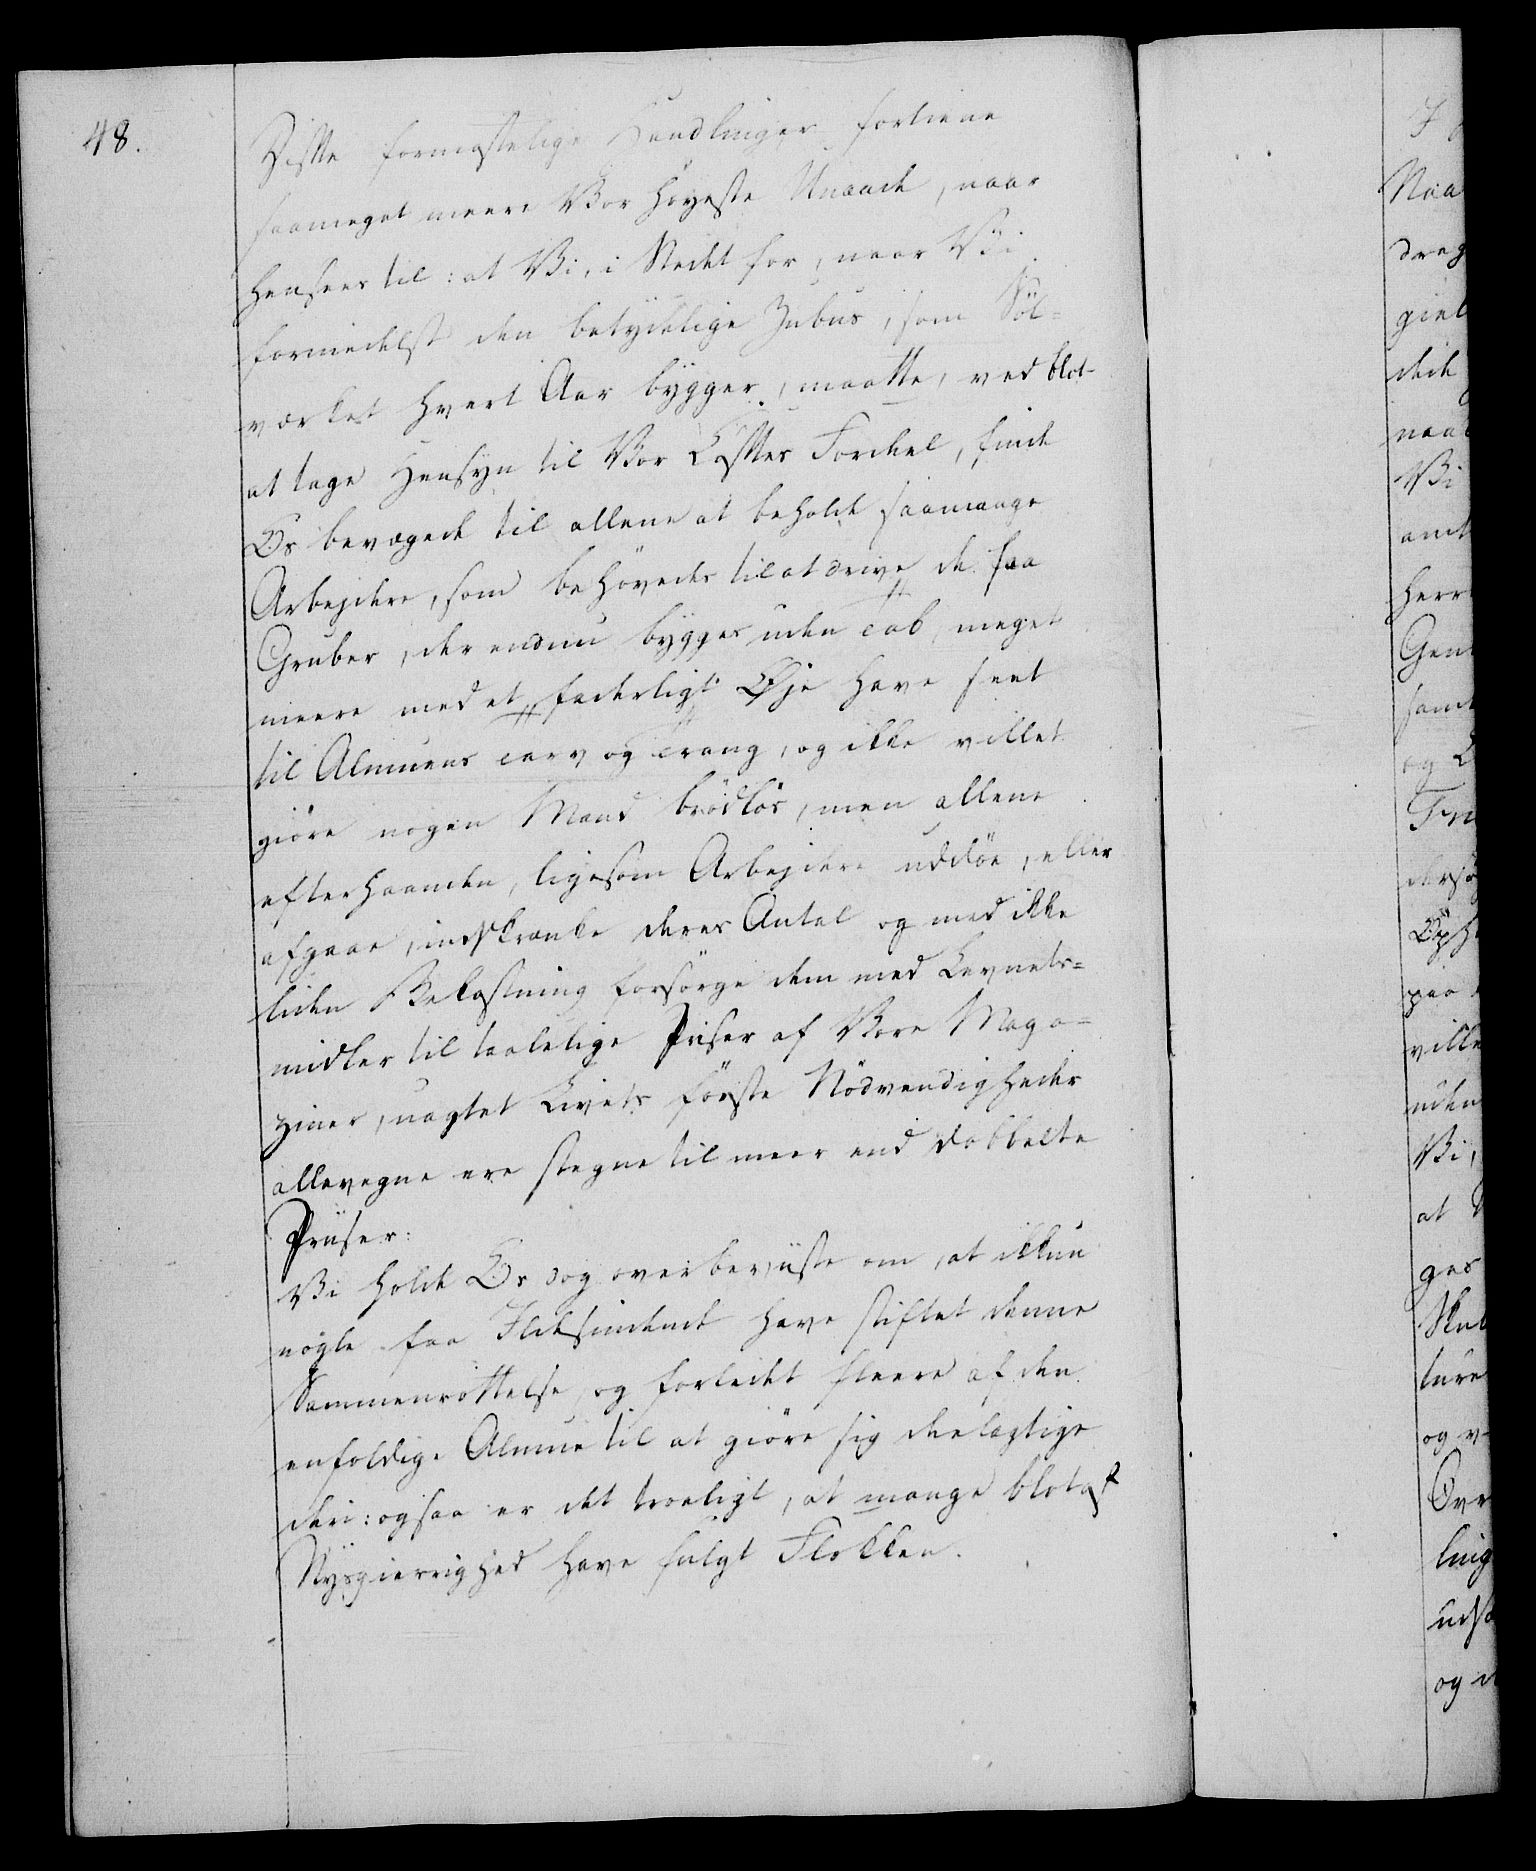 48.
Disse formastelige Handlinger fortiene
saameget meere Vor høyeste Unaade, naar
hensees til: at Vi, i Stedet for, naar Vi
formedelst den betydelige Zubus, som Søl-
værket hvert Aar bygger, maatte, ved blot
at tage Hensyn til Vor Casses Fordeel, finde
Os bevæget til allene at beholde saamange
Arbejdere, som behøvedes til at drive de faa
Gruber, der endnu bygges uden Tab, meget
meere med et faderligt Øje have seet
til Almuens Tarv og Trang, og ikke villet
giøre nogen Mand brødløs, men allene
efterhaanden, ligesom Arbejdere uddøe, eller
afgaae, indskrænke deres Antal og med ikke
liden Bekostning forsørge dem med Levnets-
midler til taalelige Priser af Vore Maga-
ziner, uagtet Livets første Nødvendigheder
allevegne ere stegne til meer end dobbelte
Priiser:
Vi holde Os dog overbeviiste om, at ikkun
nogle faa Ildesindede have stiftet denne
Sammenrottelse, og forledet fleere af den
enfoldige Almue til at giøre sig deelagtige
deri: ogsaa er det troeligt, at mange blot af
Nysgierrighed have fulgt Flokken.
Naa
drag
giel
dede
naa
Vi
amt
herr
Gen
samt
og
dersø
Oph
paa
ville
uden
Vi,
at
ges
Skul
ture
og v
Ovr
ling
udsa
og